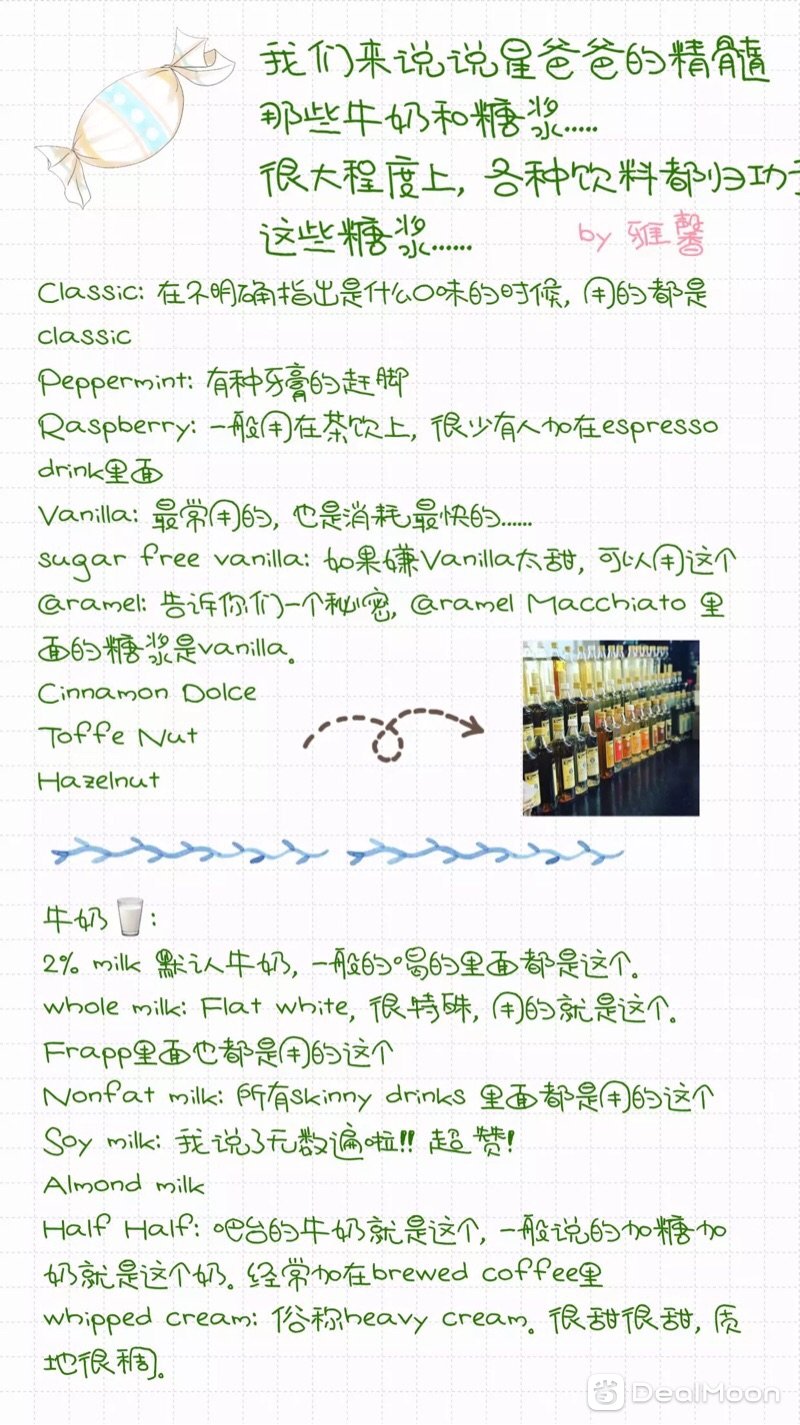 我们来说说星爸爸的精髓
那些牛奶和糖浆.....
很大程度上，各种饮料都归功于
这些糖浆......
by 雅馨
Classic: 在不明确指出是什么口味的时候，用的都是
classic
Peppermint: 有种牙膏的赶脚
Raspberry: 一般用在茶饮上，很少有人加在espresso
drink里面
Vanilla: 最常用的，也是消耗最快的......
sugar free vanilla: 如果嫌Vanilla太甜，可以用这个
Caramel: 告诉你们一个秘密，Caramel Macchiato 里
面的糖浆是vanilla。
Cinnamon Dolce
Toffe Nut
Hazelnut
牛奶🥛:
2% milk 默认牛奶，一般的喝的里面都是这个。
whole milk: Flat white，很特殊，用的就是这个。
Frapp里面也都是用的这个
Nonfat milk: 所有skinny drinks 里面都是用的这个
Soy milk: 我说了无数遍啦!! 超赞!
Almond milk
Half Half: 吧台的牛奶就是这个，一般说的加糖加
奶就是这个奶。经常加在brewed coffee里
whipped cream: 俗称heavy cream。很甜很甜，质
地很稠。
DealMoon